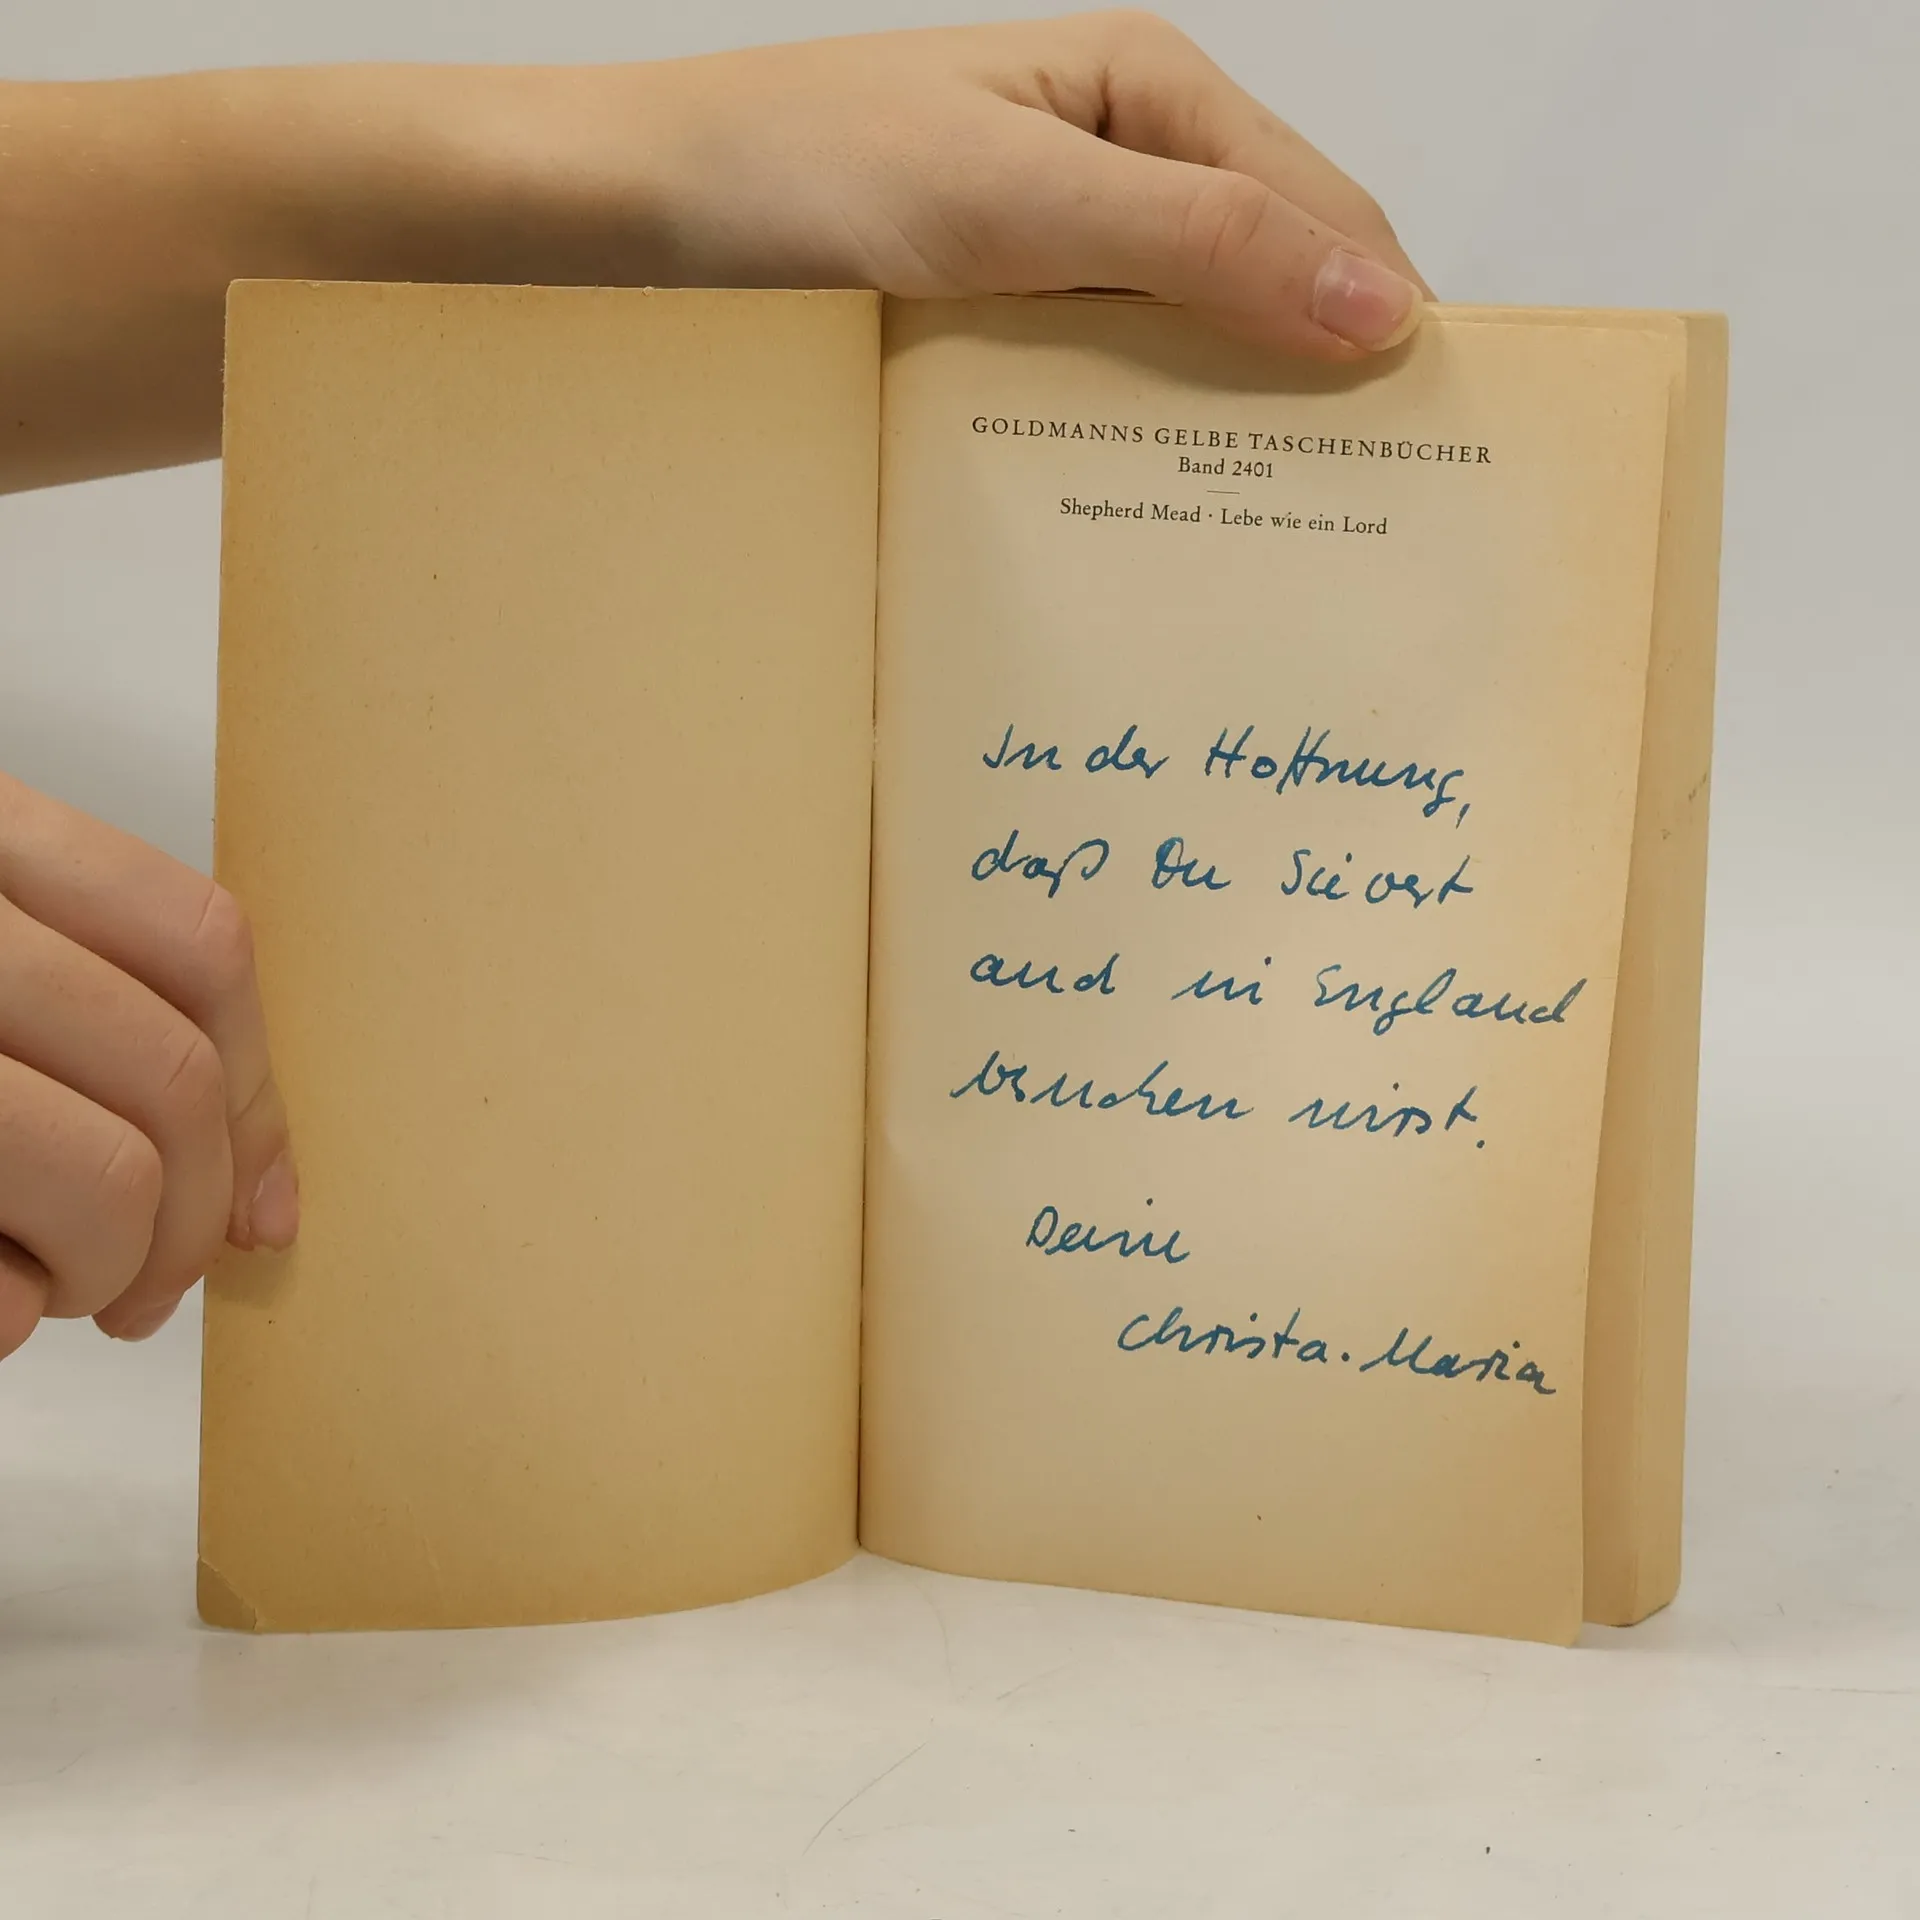 GOLDMANNS GELBE TASCHENBÜCHER
Band 2401
Shepherd Mead · Lebe wie ein Lord
In der Hoffnung,
daß Du
in England
wirst.
Deine
Christa-Maria